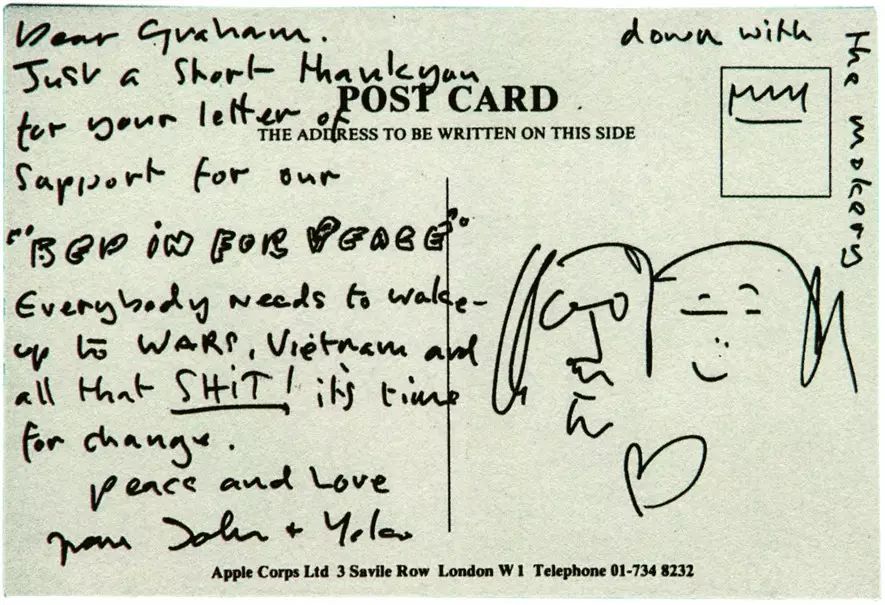 Dear Graham.
Just a short thankyou
for your letter of
support for our
"BED IN FOR PEACE"
Everybody needs to wake-
up to WARS, Vietnam and
all that SHiT! it's time
for change.
peace and Love
from John + Yoko
POST CARD
THE ADDRESS TO BE WRITTEN ON THIS SIDE
down with
the mokers
Apple Corps Ltd 3 Savile Row London W1 Telephone 01-734 8232